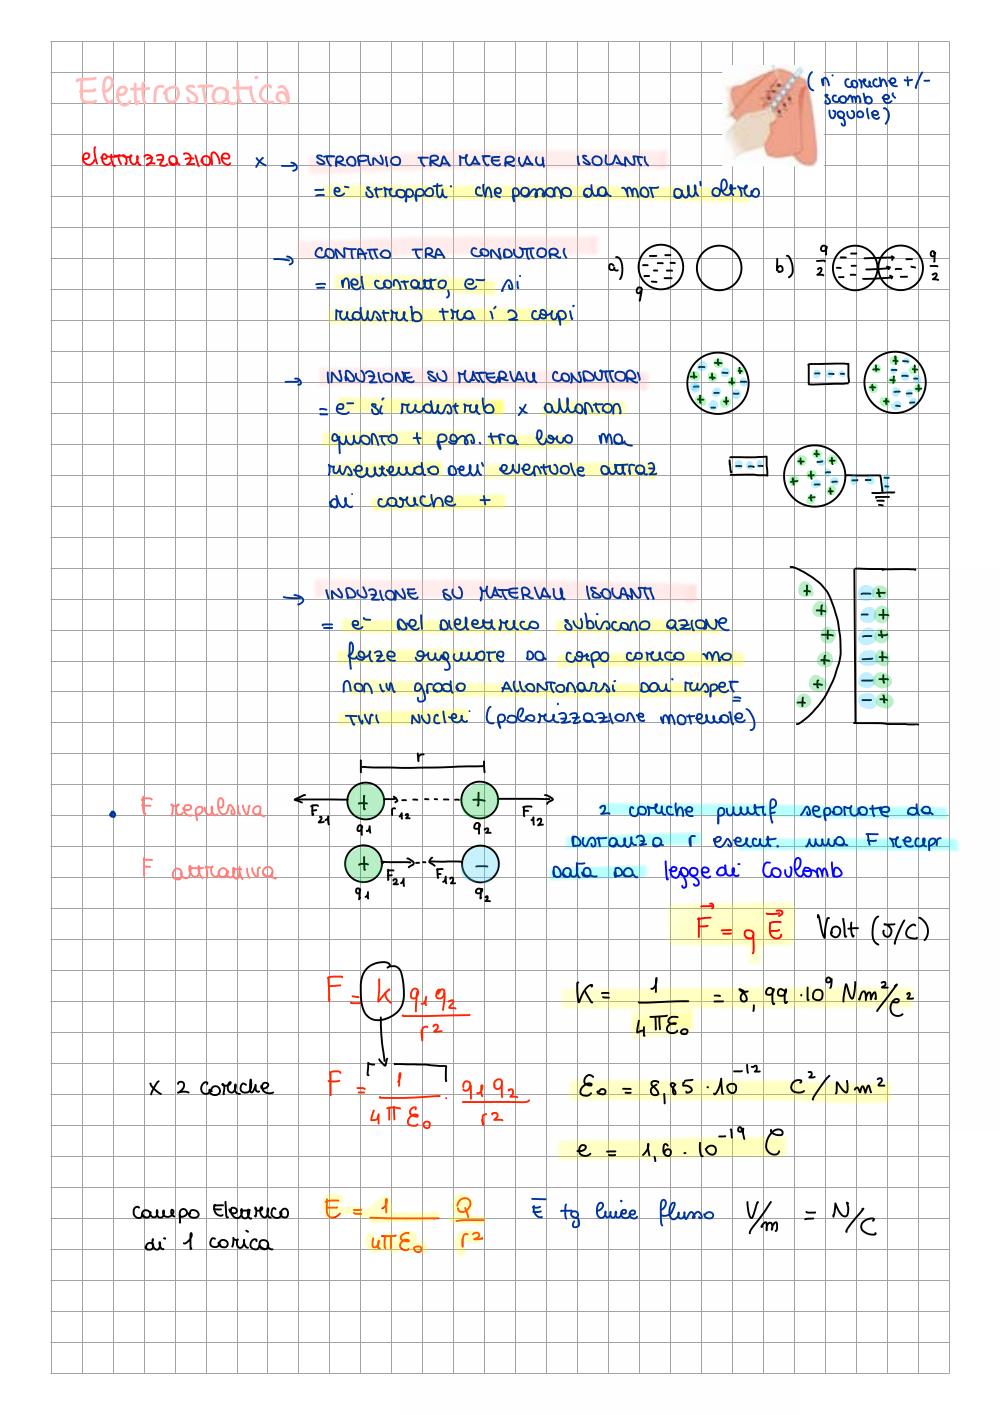 Elettrostatica
( n° cariche +/-
scamb e'
uguale )
elettrizzazione x → STROFINIO TRA MATERIALI ISOLANTI
= e⁻ strappati che passano da mat all' altro
→ CONTATTO TRA CONDUTTORI
a) q b) q/2 q/2
= nel contatto, e⁻ si
redistrib tra i 2 corpi
→ INDUZIONE SU MATERIALI CONDUTTORI
= e⁻ si redistrib x allontan
quanto + poss. tra loro ma
risentendo dell' eventuale attraz
di cariche +
→ INDUZIONE SU MATERIALI ISOLANTI
= e⁻ del dielettrico subiscono azione
forze originate da corpo carico ma
non in grado allontanarsi dai rispet=
tivi nuclei (polarizzazione molecole)
r
• F repulsiva F₂₁ + r₁₂ + F₁₂
q₁ q₂
2 cariche puntif separate da
distanza r esercit. una F recipr
data da legge di Coulomb
F attrattiva + F₂₁ F₁₂ -
q₁ q₂
F⃗ = q E⃗ Volt (J/C)
F = k q₁q₂/r²
K = 1/4πε₀ = 8,99 · 10⁹ Nm²/C²
x 2 cariche F = 1/4πε₀ · q₁q₂/r²
ε₀ = 8,85 · 10⁻¹² C²/Nm²
e = 1,6 · 10⁻¹⁹ C
campo Elettrico
di 1 carica
E = 1/4πε₀ Q/r²
E̅ tg linee flusso V/m = N/C